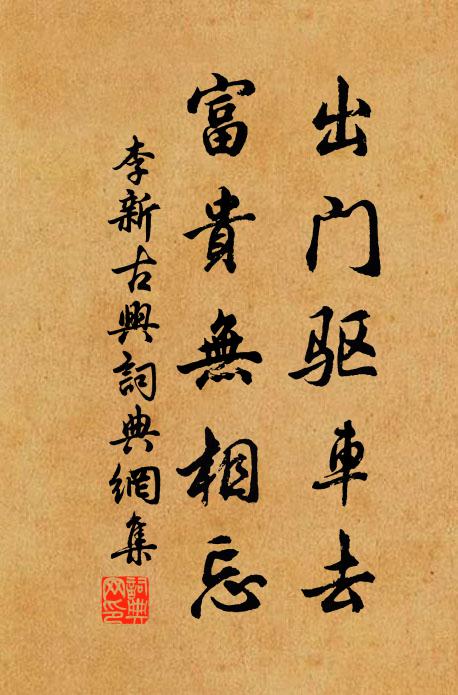 出门驱車去
富貴無相忘
李新古典詞典網集
詞典
网印